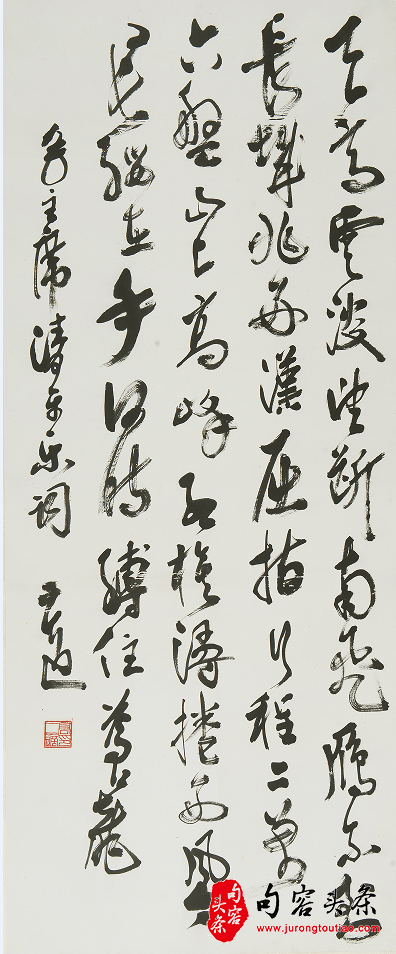 天高雲淡望斷南飛雁不到
長城非好漢屈指行程二萬
六盤山上高峰紅旗漫捲西風今
日長纓在手何時縛住蒼龍
毛主席清平乐词
句容
头条
句容头条
www.jurongtoutiao.com